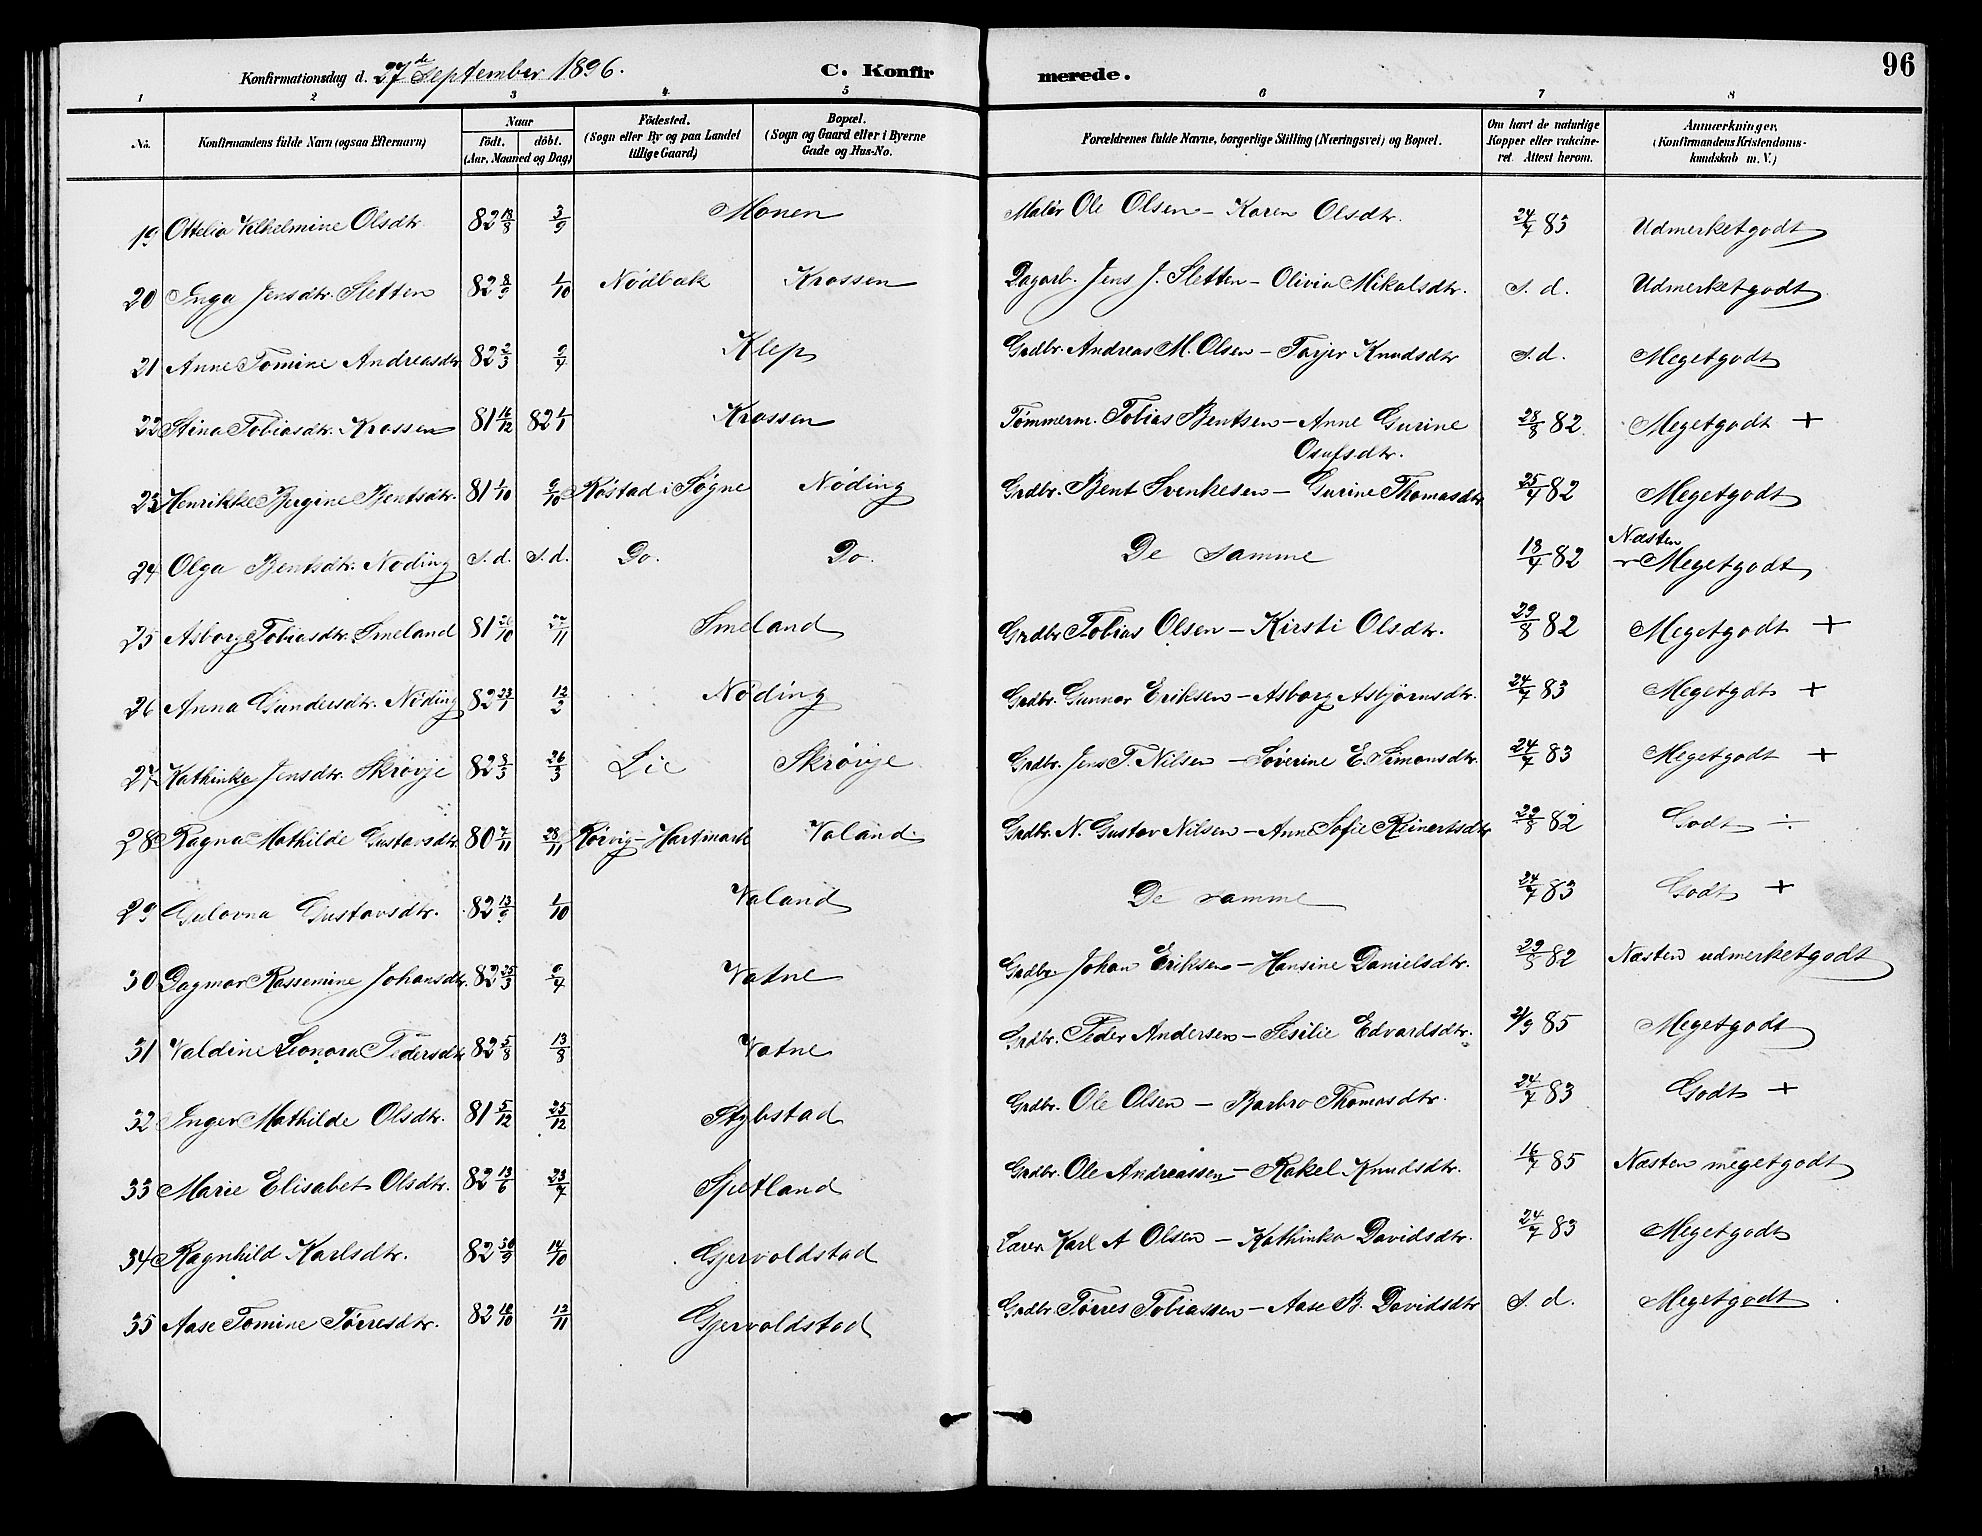 Konfirmationsdag d. 27de September 1896. C. Konfirmerede. 96
1 2 3 4 5 6 7 8
No. Konfirmandens fulde Navn (ogsaa Efternavn) Naar födt. döbt. (Aar, Maaned og Dag) Födested. (Sogn eller By og paa Landet tillige Gaard) Bopæl. (Sogn og Gaard eller i Byerne Gade og Hus-No. Forældrenes fulde Navne, borgerlige Stilling (Næringsvei) og Bopæl. Om havt de naturlige Kopper eller vakcineret. Attest herom. Anmærkninger, (Konfirmandens Kristendomskundskab m. V.)
19 Ottelia Vilhelmine Olsdtr. 82 18/8 3/9 Monen Maler Ole Olsen – Karen Olsdtr. 24/7 83 Udmerketgodt
20 Inga Jensdtr. Sletten 82 8/9 1/10 Nödbak Krossen Dagarb. Jens J. Sletten – Olivia Mikalsdtr. s. d. Udmerketgodt
21 Anne Tomine Andreasdtr 82 2/3 9/4 Klep Grdbr. Andreas M. Olsen – Tarjer Knudsdtr s. d. Megetgodt
22 Stina Tobiasdtr. Krossen 81 16/12 82 1/1 Krossen Tømmerm. Tobias Bentsen – Anne Gurine Osufsdtr. 28/8 82 Megetgodt +
23 Henrikke Bergine Bentsdtr. 81 1/10 9/10 Røstad i Søgne Nøding Grdbr. Bent Svenkesen – Gurine Thomasdtr 25/4 82 Megetgodt
24 Olga Bentsdtr. Nøding s. d. s. d. Do. Do. De samme 18/4 82 Næsten Megetgodt
25 Asborg Tobiasdtr. Smeland 81 26/10 27/11 Smeland Grdbr Tobias Olsen – Kirsti Olsdtr. 29/8 82 Megetgodt +
26 Anna Gundersdtr. Nöding 82 23/1 12/2 Nöding Grdbr. Gunnar Eriksen – Asborg Asbjørnsdtr. 24/7 83 Megetgdt +
27 Kathinka Jensdtr. Skrøvje 82 8/3 26/3 Lie Skrøvje Grdbr. Jens T. Nilsen – Søverine E. Simonsdtr. 24/7 83 Megetgodt +
28 Ragna Mathilde Gustavsdtr. 80 7/11 28/11 Rørvig – Hartmark Valand Grdbr. N. Gustav Nilsen – Anne Sofie Reinertsdtr 29/8 82 Godt ÷
29 Gulovna Gustavsdtr. 82 13/9 1/10 Valand De samme 24/7 83 Godt +
30 Dagmar Rassemine Johansdtr. 82 25/3 9/4 Vatne Grdbr. Johan Eriksen – Hansine Danielsdtr. 29/8 82 Næsten udmerketgodt
31 Valdine Leonora Pedersdtr 82 5/8 13/8 Vatne Grdbr. Peder Andersen – Sesilie Edvardsdtr. 21/9 85 Megetgodt
32 Inger Mathilde Olsdtr. 81 5/12 25/12 Stybstad Grdbr. Ole Olsen – Barbro Thomasdtr. 24/7 83 Godt +
33 Marie Elisabet Olsdtr. 82 13/6 23/7 Spetland Grdbr. Ole Andreassen – Rakel Knudsdtr. 16/7 85 Næsten megetgodt
34 Ragnhild Karlsdtr. 82 30/9 14/10 Gjervoldstad Lærer Karl A Olsen – Kathinka Davidsdtr. 24/7 83 Megetgodt
35 Aase Tomine Tørresdtr. 82 18/10 12/11 Gjervoldstad Grdbr. Tørres Tobiassen – Aase B. Davidsdtr s. d. Megetgodt